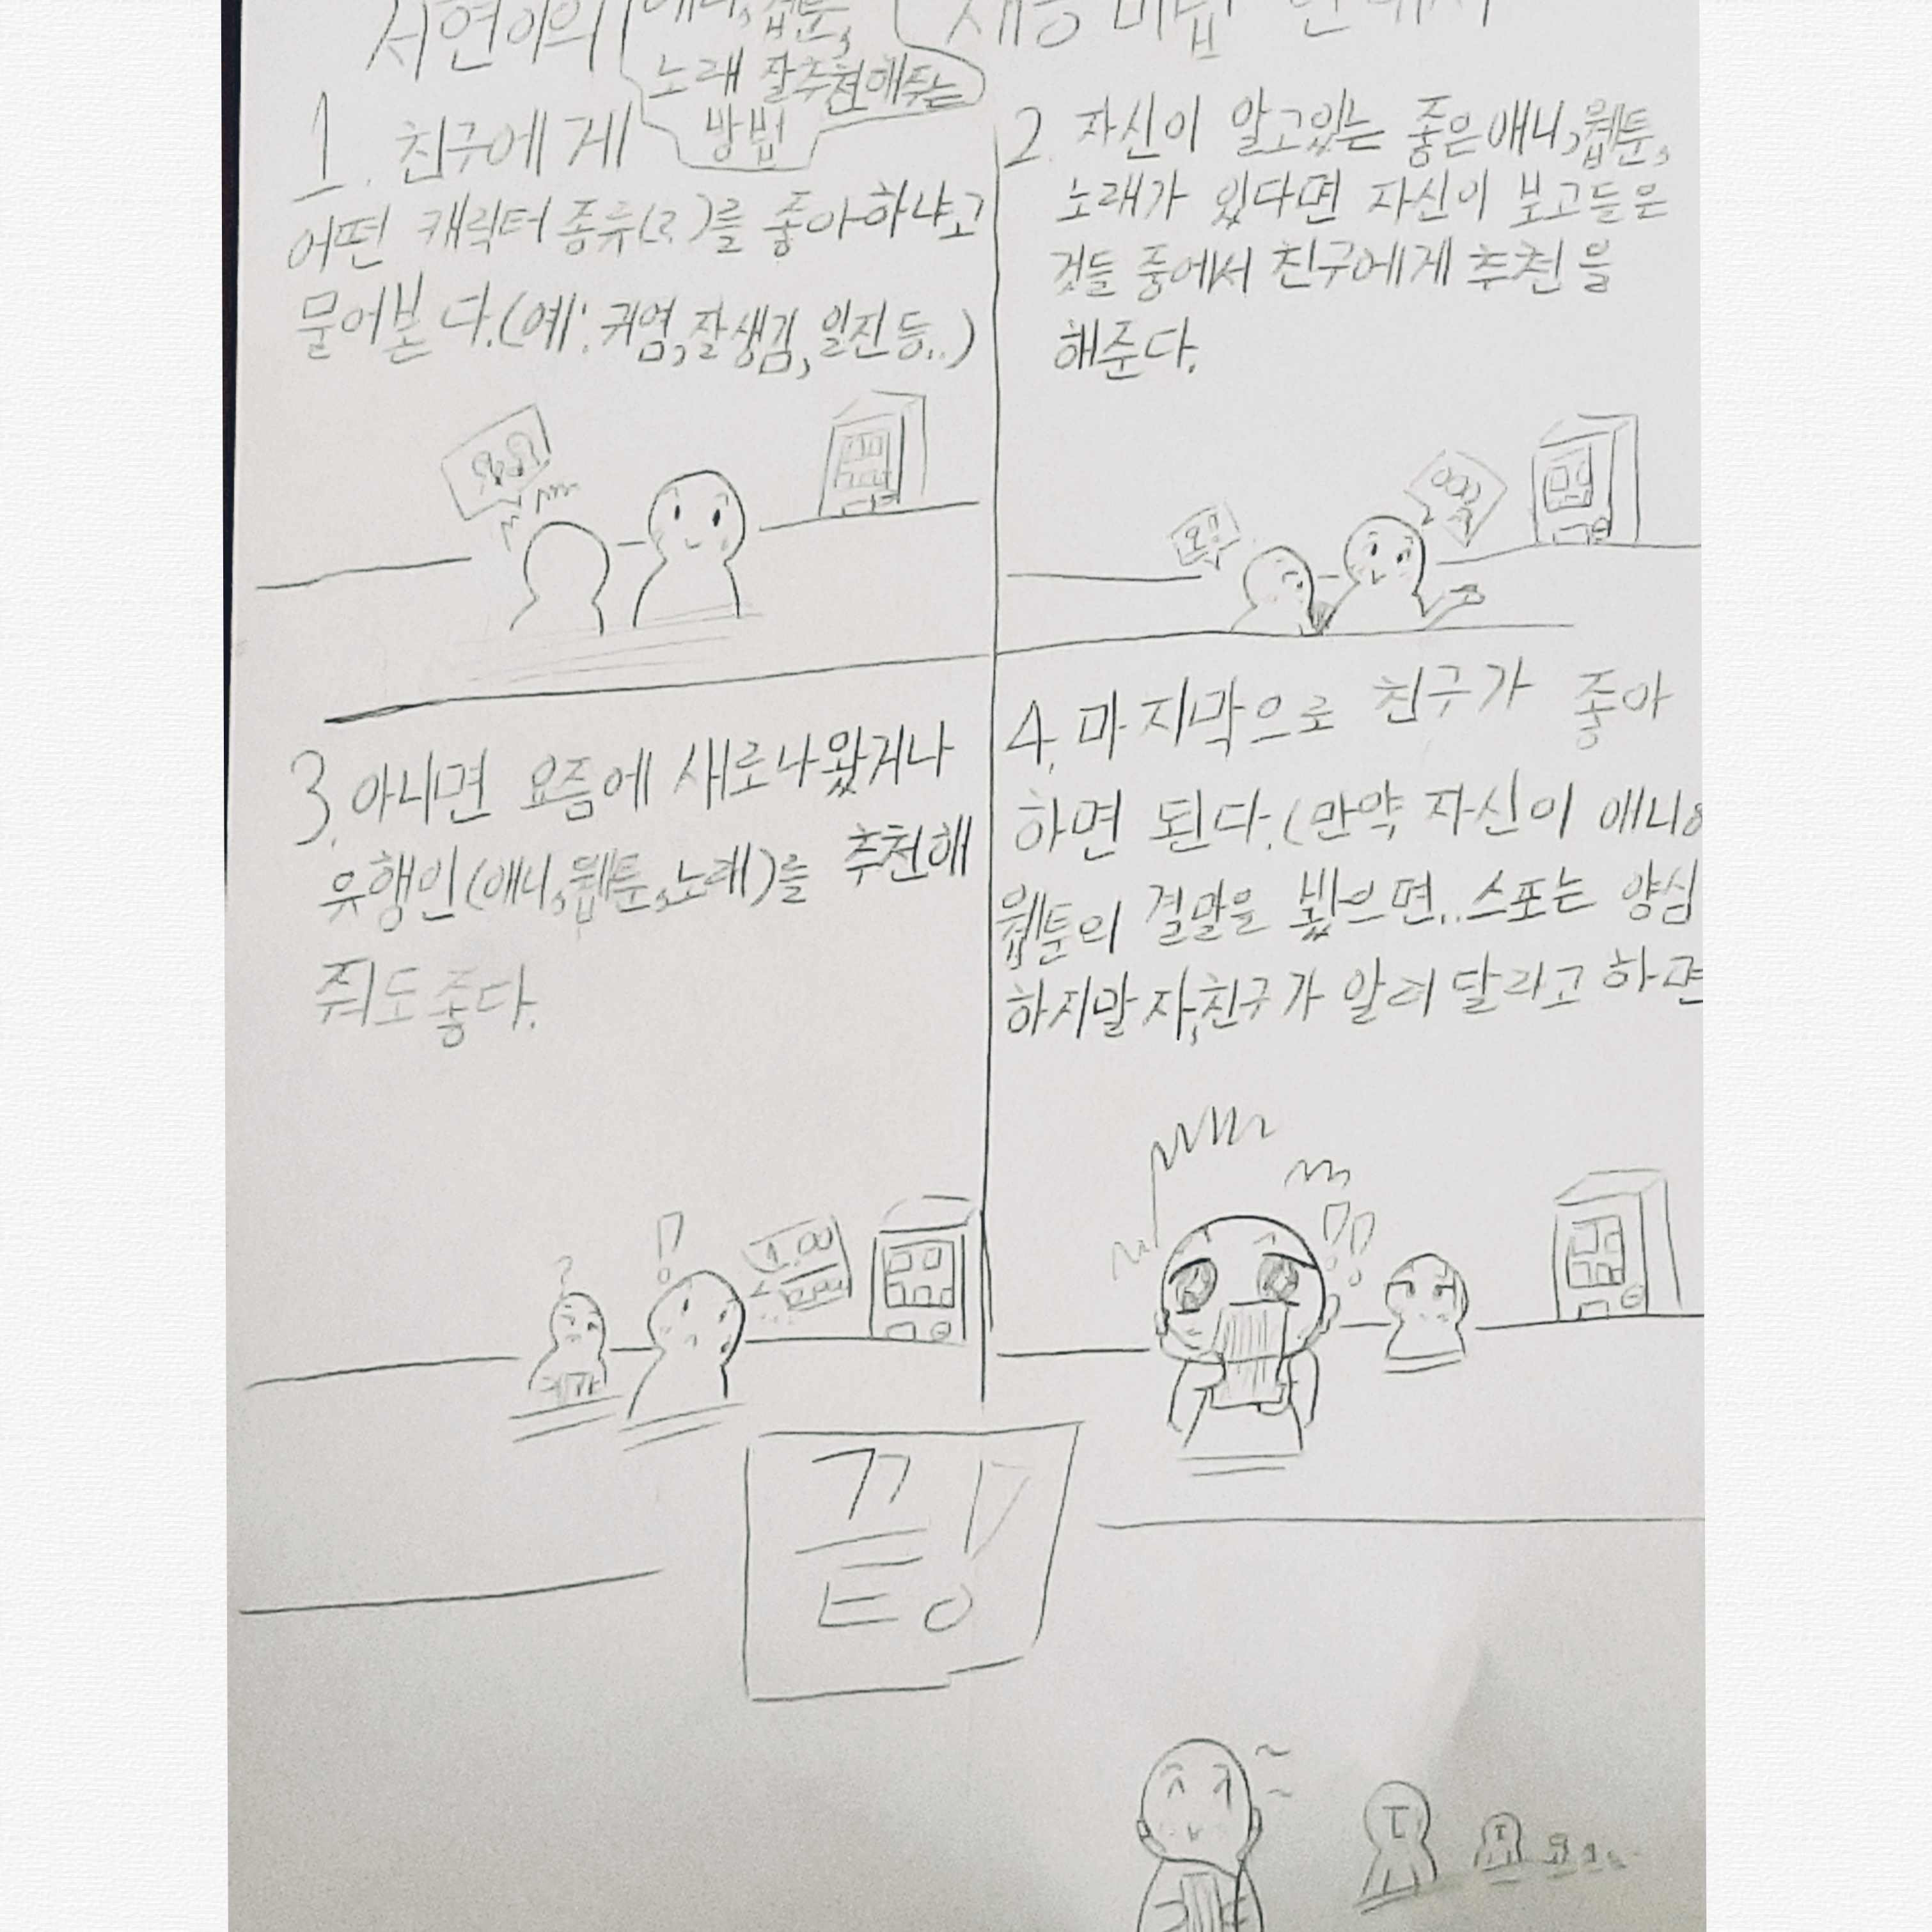 서연이의
노래 잘추천해주는
방법
1. 친구에게
어떤 캐릭터 종류(?)를 좋아하냐고
물어본다.(예: 귀염,잘생김,일진등..)
2. 자신이 알고있는 좋은애니,웹툰,
노래가 있다면 자신이 보고들은
것들 중에서 친구에게 추천을
해준다.
3. 아니면 요즘에 새로나왔거나
유행인(애니,웹툰,노래)를 추천해
줘도좋다.
4. 마지막으로 친구가 좋아
하면 된다.(만약 자신이 애니
웹툰의 결말을 봤으면..스포는 양심
하지말자,친구가 알려달라고 하면
끝!